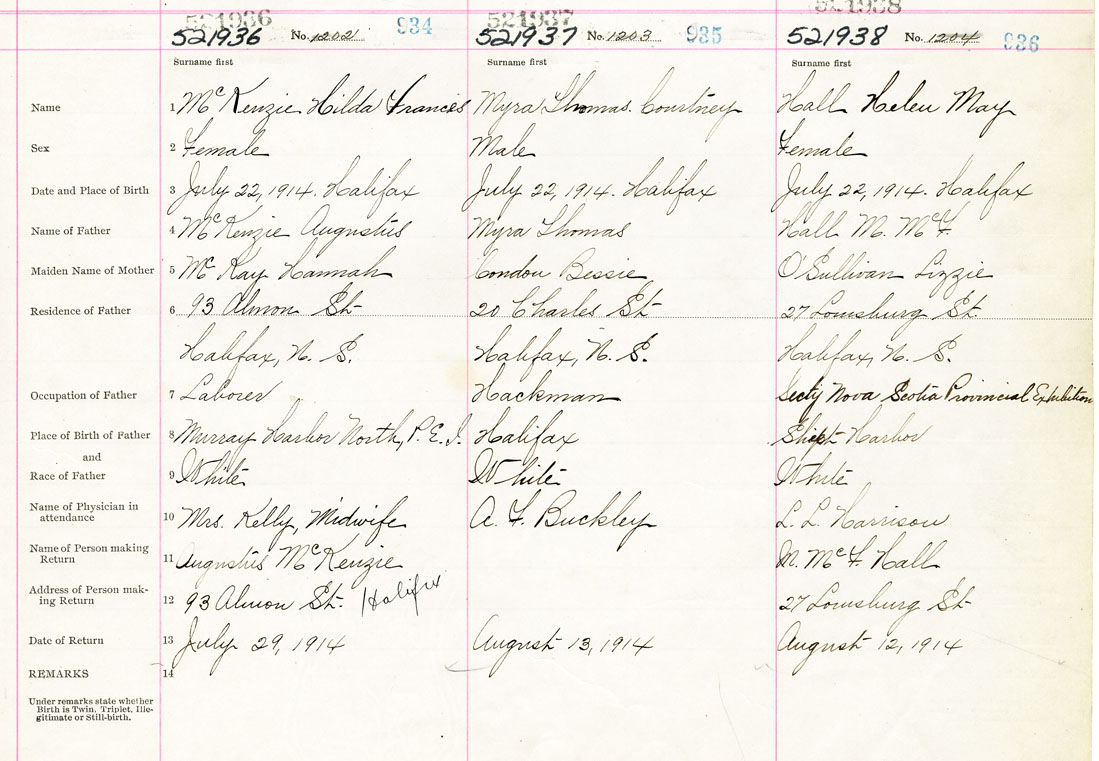 521936 521937 521938
521936 No. 1202 934 521937 No. 1203 935 521938 No. 1204 936
Surname first Surname first Surname first
Name 1 McKenzie Hilda Francis Myra Thomas Courtney Hall Helen May
Sex 2 Female Male Female
Date and Place of Birth 3 July 22, 1914. Halifax July 22, 1914. Halifax July 22, 1914. Halifax
Name of Father 4 McKenzie Augustus Myra Thomas Hall M. McF.
Maiden Name of Mother 5 McKay Hannah Condon Bessie O'Sullivan Lizzie
Residence of Father 6 93 Almon St. 20 Charles St 27 Louisburg St.
Halifax, N. S. Halifax, N. S. Halifax, N. S.
Occupation of Father 7 Laborer Hackman Secty Nova Scotia Provincial Exhibition
Place of Birth of Father 8 Murray Harbor North, P. E. I. Halifax Harbor
and
Race of Father 9 White White White
Name of Physician in
attendance 10 Mrs. Kelly, Midwife A. F. Buckley L. L. Harrison
Name of Person making
Return 11 Augustus McKenzie M. McF. Hall
Address of Person mak-
ing Return 12 93 Almon St. Halifax 27 Louisburg St
Date of Return 13 July 29, 1914 August 13, 1914 August 12, 1914
REMARKS 14
Under remarks state whether
Birth is Twin. Triplet, Ille-
gitimate or Still-birth.